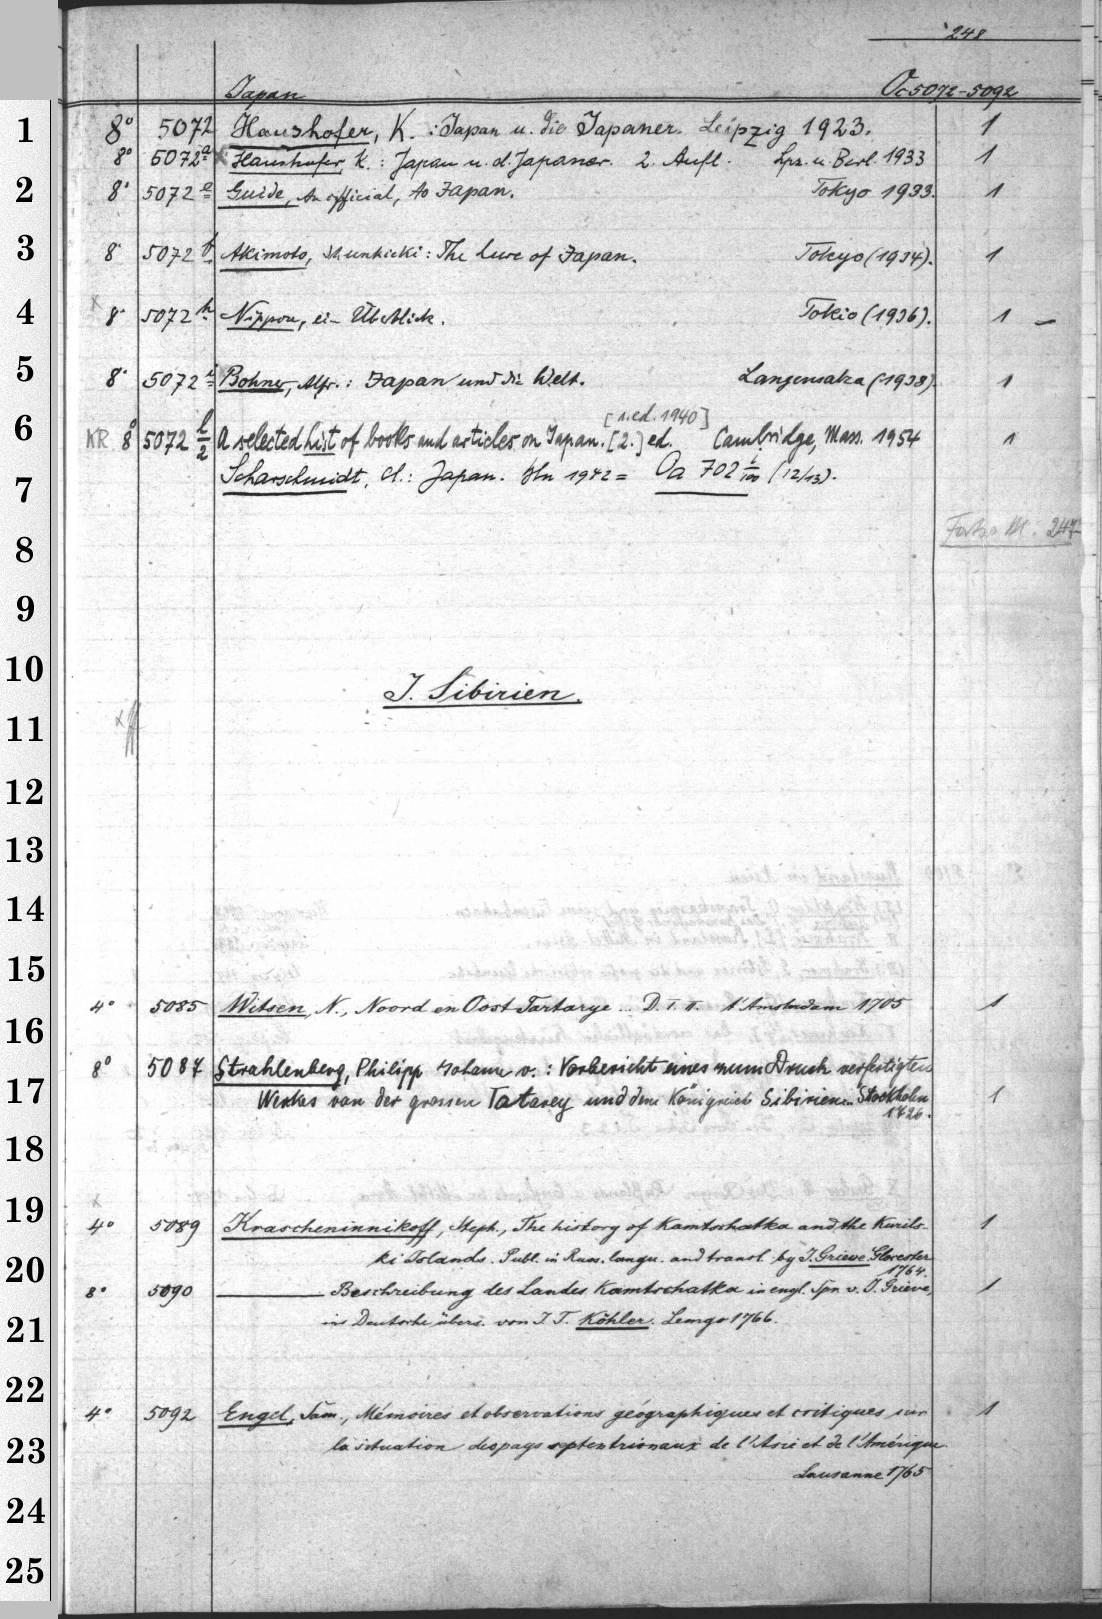 248
Japan Oc 5072-5092
1 8° 5072 Haushofer, K.: Japan u. die Japaner. Leipzig 1923. 1
8° 5072a x Haushofer, K.: Japan u. d. Japaner. 2. Aufl. Lpz. u. Berl. 1933 1
2 8° 5072e Guide, An official, to Japan. Tokyo 1933. 1
3 8° 5072f Akimoto, Shunkichi: The lure of Japan. Tokyo (1934). 1
x
4 8° 5072h Nippon, ein Überblick. Tokio (1936). 1 –
5 8° 5072i Bohner, Alfr.: Japan und die Welt. Langensalza (1938). 1
[1. ed. 1940]
6 KR 8° 5072 l/2 A selected list of books and articles on Japan. [2.] ed. Cambridge, Mass. 1954 1
7 Scharschmidt, Cl.: Japan. Bln 1942 = Oa 702 i/100 (12/13).
8 247
9
10 J. Sibirien.
11
12
13
14
15
4° 5085 Witsen, N., Noord en Oost Tartarye ... D. I. II. t'Amsterdam 1705 1
16
8° 5087 Strahlenberg, Philipp Johann v.: Vorbericht eines zum Druck verfertigten
17 Werkes von der grossen Tatarey und dem Königreich Sibirien... Stockholm 1
1726.
18
x
19 4° 5089 Krascheninnikoff, Steph., The history of Kamtschatka and the Kurils-
ki Islands. Publ. in Russ. langu. and transl. by J. Grieve Glocester 1
20 1764.
8° 5090 ——— Beschreibung des Landes Kamtschatka in engl. Spr. v. J. Grieve, 1
21 ins Deutsche übers. von J. T. Köhler. Lemgo 1766.
22 4° 5092 Engel, Sam., Mémoires et observations géographiques et critiques sur 1
23 la situation des pays septentrionaux de l'Asie et de l'Amérique.
Lausanne 1765
24
25